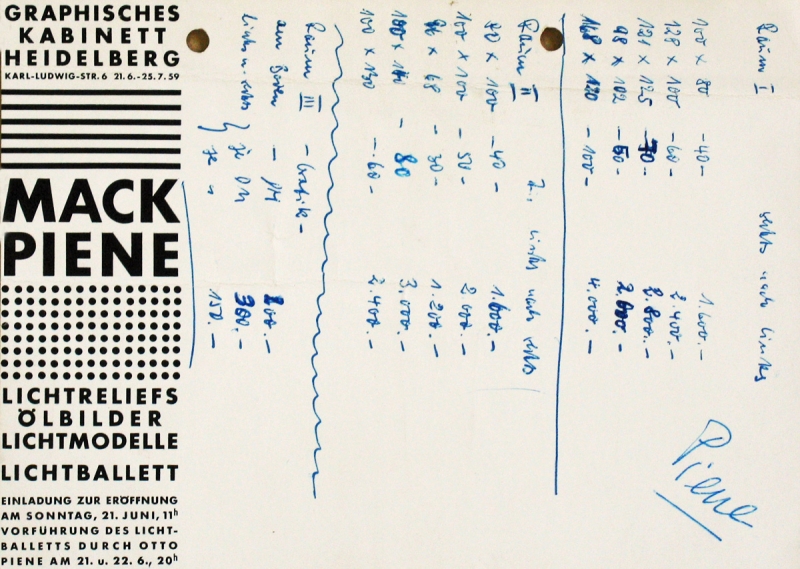 GRAPHISCHES
KABINETT
HEIDELBERG
KARL-LUDWIG-STR. 6 21.6.-25.7.59
MACK
PIENE
LICHTRELIEFS
ÖLBILDER
LICHTMODELLE
LICHTBALLETT
EINLADUNG ZUR ERÖFFNUNG
AM SONNTAG, 21. JUNI, 11h
VORFÜHRUNG DES LICHT-
BALLETTS DURCH OTTO
PIENE AM 21. u. 22. 6., 20h
Raum I rechts nach links
100 x 80 -40- 1.600.-
128 x 100 -60- 2.400.-
121 x 125 -70- 2.800.-
98 x 102 -50- 2.000.-
148 x 120 -100- 4.000.-
Raum II links nach rechts
80 x 100 -40- 1.600.-
100 x 100 -50- 2.000.-
96 x 68 -30- 1.200.-
100 x 140 - 80 3.000.-
100 x 130 -60- 2.400.-
Raum III - Grafik -
am Boden - 200.-
je DM 300.-
je " 150.-
Piene